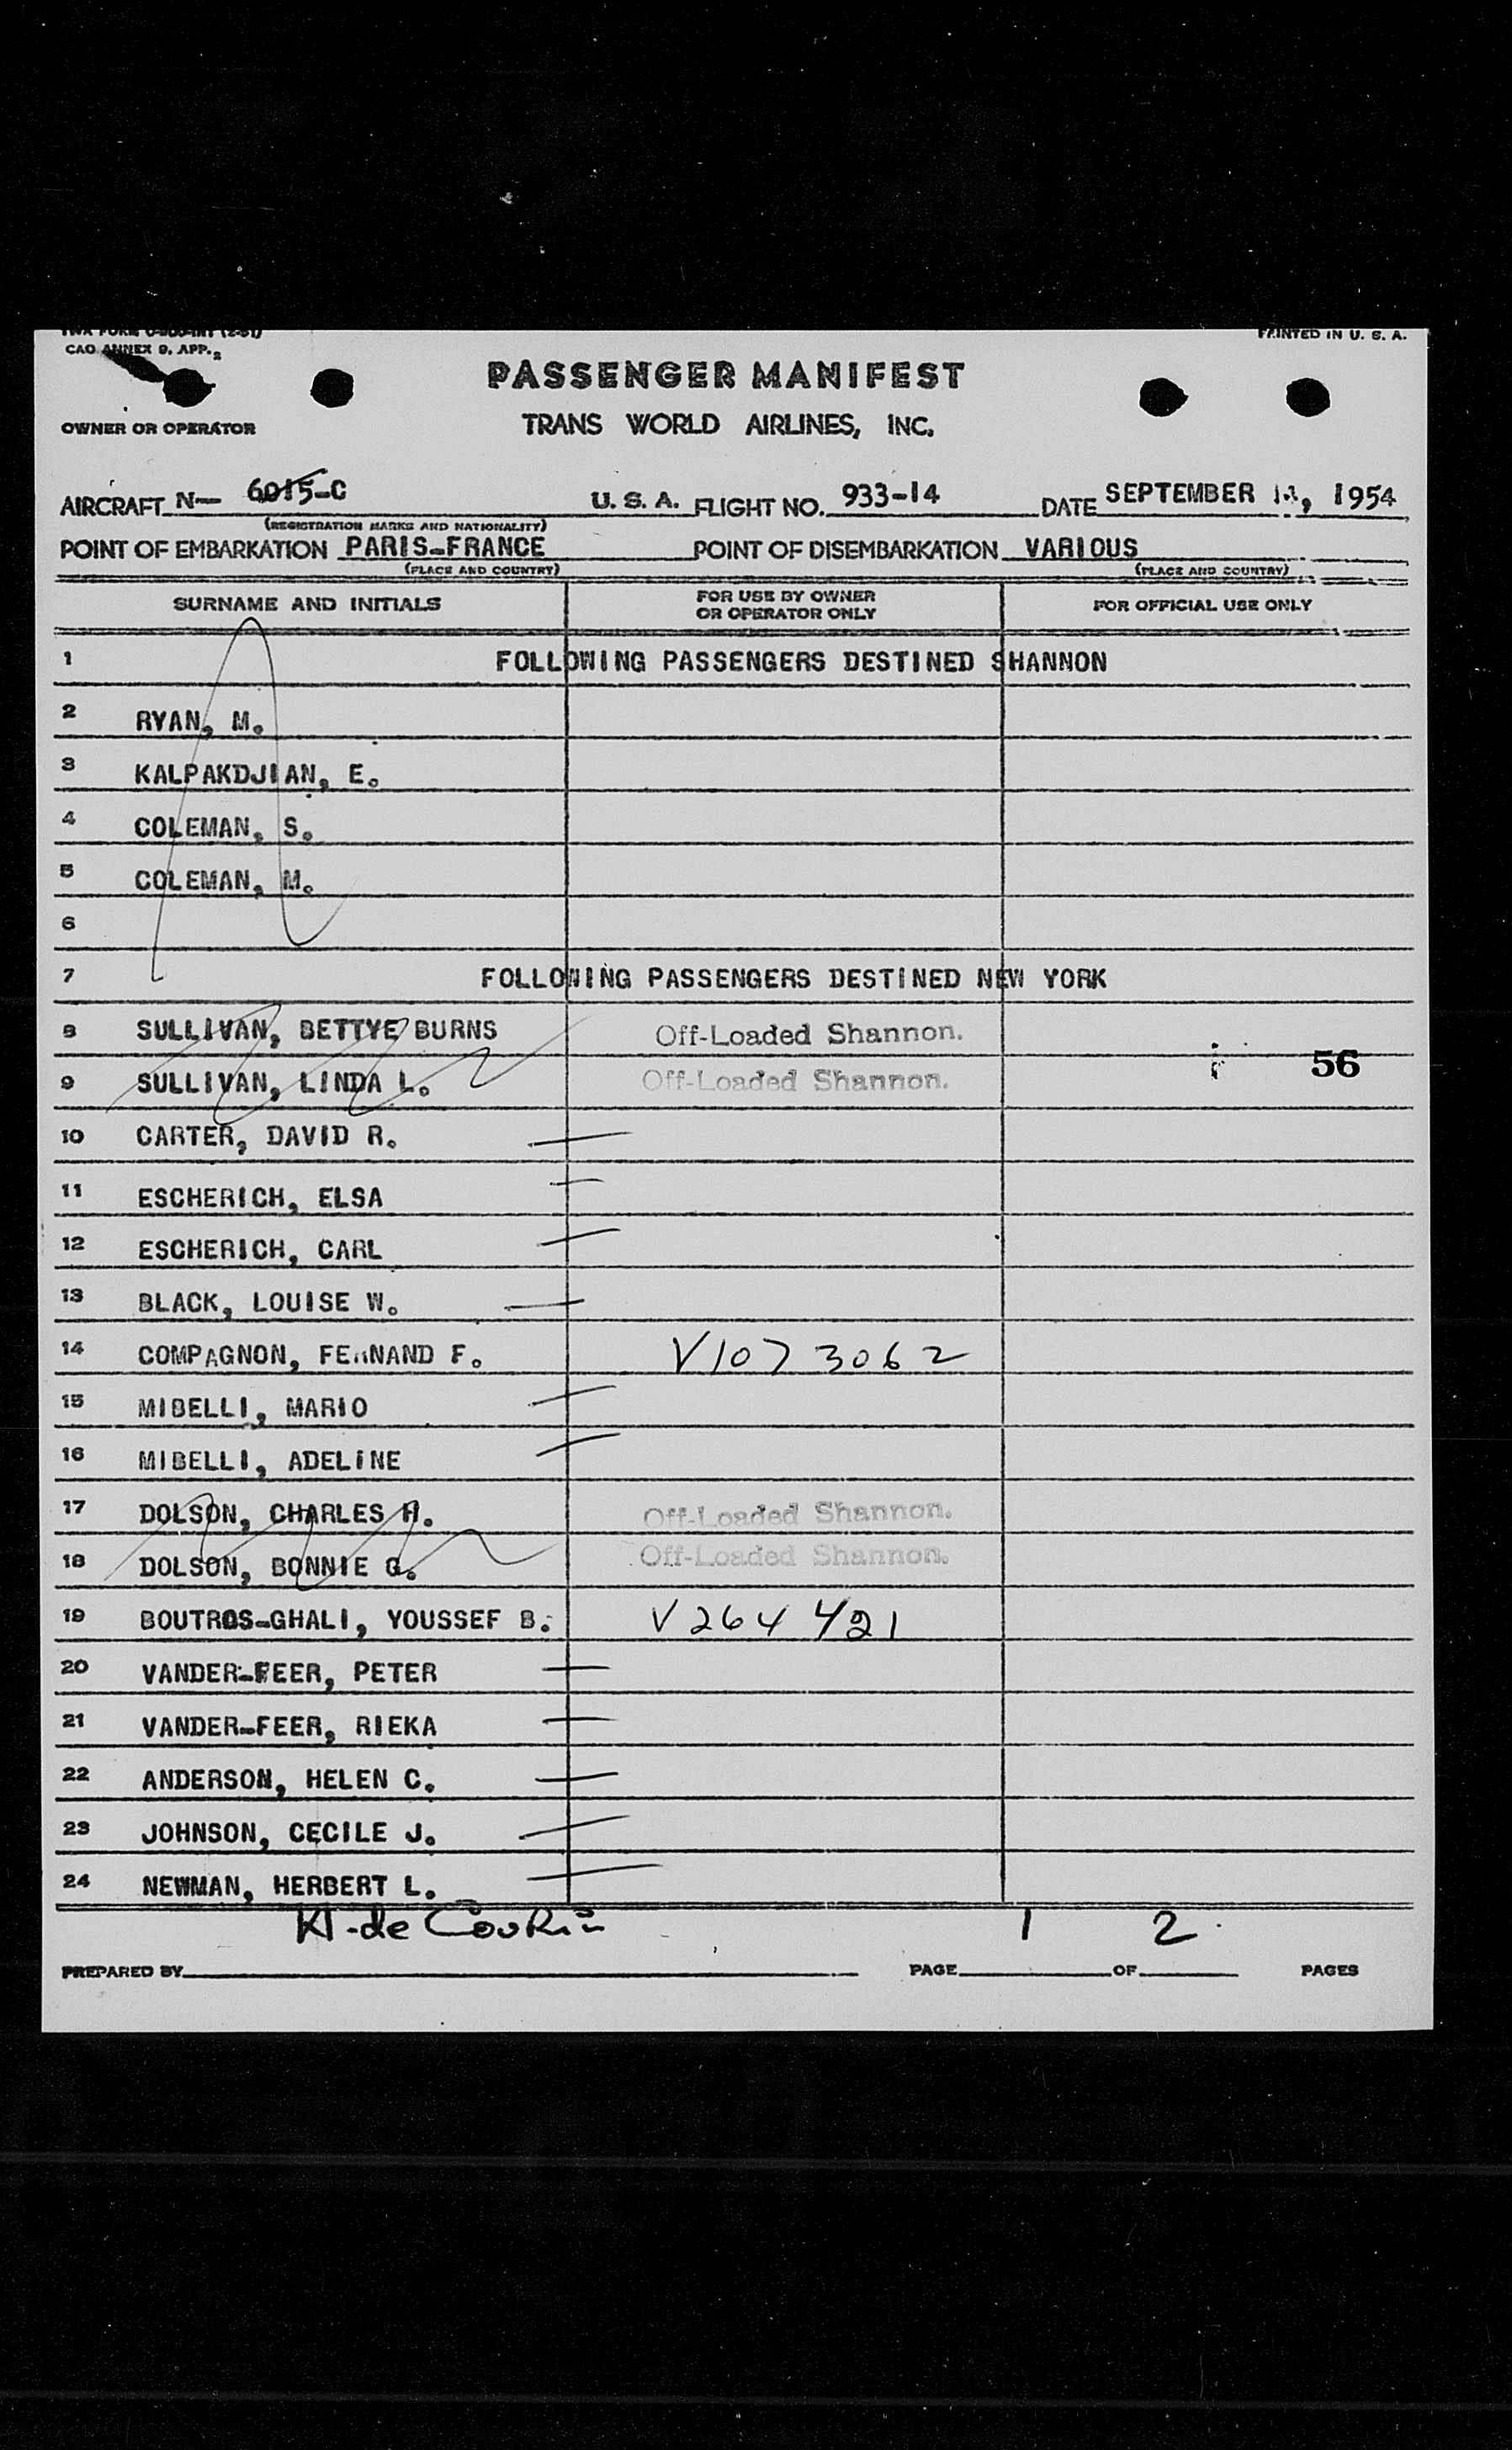 TWA FORM
PRINTED IN U. S. A.
CAO ANNEX 9, APP. 2
PASSENGER MANIFEST
OWNER OR OPERATOR
TRANS WORLD AIRLINES, INC.
AIRCRAFT N— 6015-C U. S. A. FLIGHT NO. 933-14 DATE SEPTEMBER 1954
(REGISTRATION MARKS AND NATIONALITY)
POINT OF EMBARKATION PARIS-FRANCE POINT OF DISEMBARKATION VARIOUS
(PLACE AND COUNTRY) (PLACE AND COUNTRY)
SURNAME AND INITIALS FOR USE BY OWNER OR OPERATOR ONLY FOR OFFICIAL USE ONLY
1 FOLLOWING PASSENGERS DESTINED SHANNON
2 RYAN, M.
3 KALPAKDJIAN, E.
4 COLEMAN, S.
5 COLEMAN, M.
6
7 FOLLOWING PASSENGERS DESTINED NEW YORK
8 SULLIVAN, BETTYE BURNS Off-Loaded Shannon.
56
9 SULLIVAN, LINDA L. Off-Loaded Shannon.
10 CARTER, DAVID R.
11 ESCHERICH, ELSA
12 ESCHERICH, CARL
13 BLACK, LOUISE W.
14 COMPAGNON, FERNAND F. V1073062
15 MIBELLI, MARIO
16 MIBELLI, ADELINE
17 DOLSON, CHARLES H. Off-Loaded Shannon.
18 DOLSON, BONNIE G. Off-Loaded Shannon.
19 BOUTROS-GHALI, YOUSSEF B. V264421
20 VANDER-FEER, PETER
21 VANDER-FEER, RIEKA
22 ANDERSON, HELEN C.
23 JOHNSON, CECILE J.
24 NEWMAN, HERBERT L.
PREPARED BY PAGE 1 OF 2 PAGES